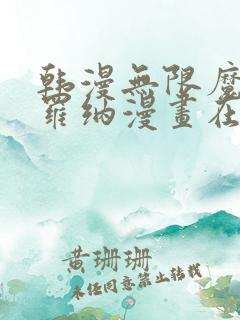 韩漫无限魔
羅納漫畫在
黄珊珊
未经同意禁止转载